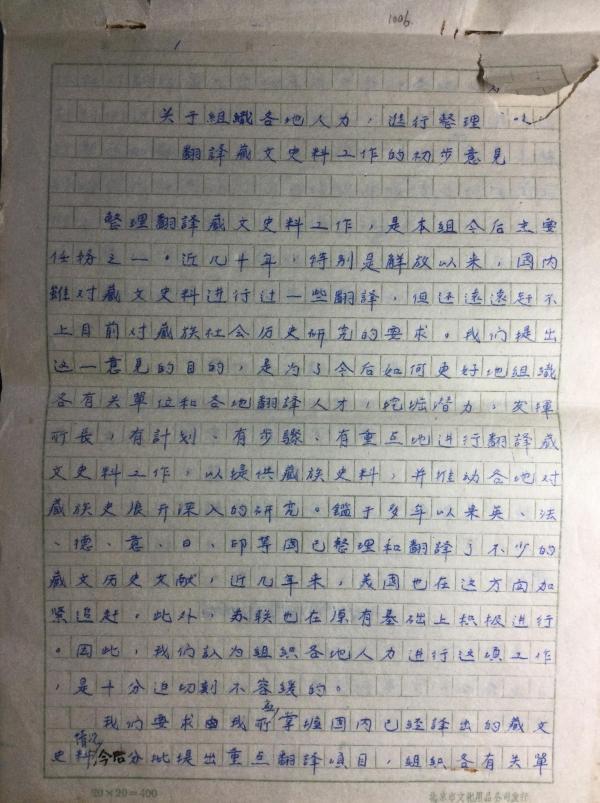 1006.
1
关于組織各地人力，進行整理
翻譯藏文史料工作的初步意見
整理翻譯藏文史料工作，是本組今后主要
任務之一。近几十年，特别是解放以来，国内
雖对藏文史料進行过一些翻譯，但还遠遠赶不
上目前对藏族社会历史研究的要求。我们提出
这一意見的目的，是为了今后如何更好地組織
各有关單位和各地翻譯人才，挖掘潜力，发揮
所長，有計划、有步驟、有重点地進行翻譯藏
文史料工作，以提供藏族史料，并推动各地对
藏族史展开深入的研究。鑑于多年以来英、法
、德、意、日、印等国已整理和翻譯了不少的
藏文历史文献，近几年来，美国也在这方面加
紧追赶，此外，苏联也在原有基础上积极進行
。因此，我们认为組织各地人力進行这項工作
，是十分迫切刻不容緩的。
我们要求由我所掌握国内已經譯出的藏文
史料情况，今后分批提出重点翻譯項目，組织各有关單
20×20=400
北京市文化用品公司发行